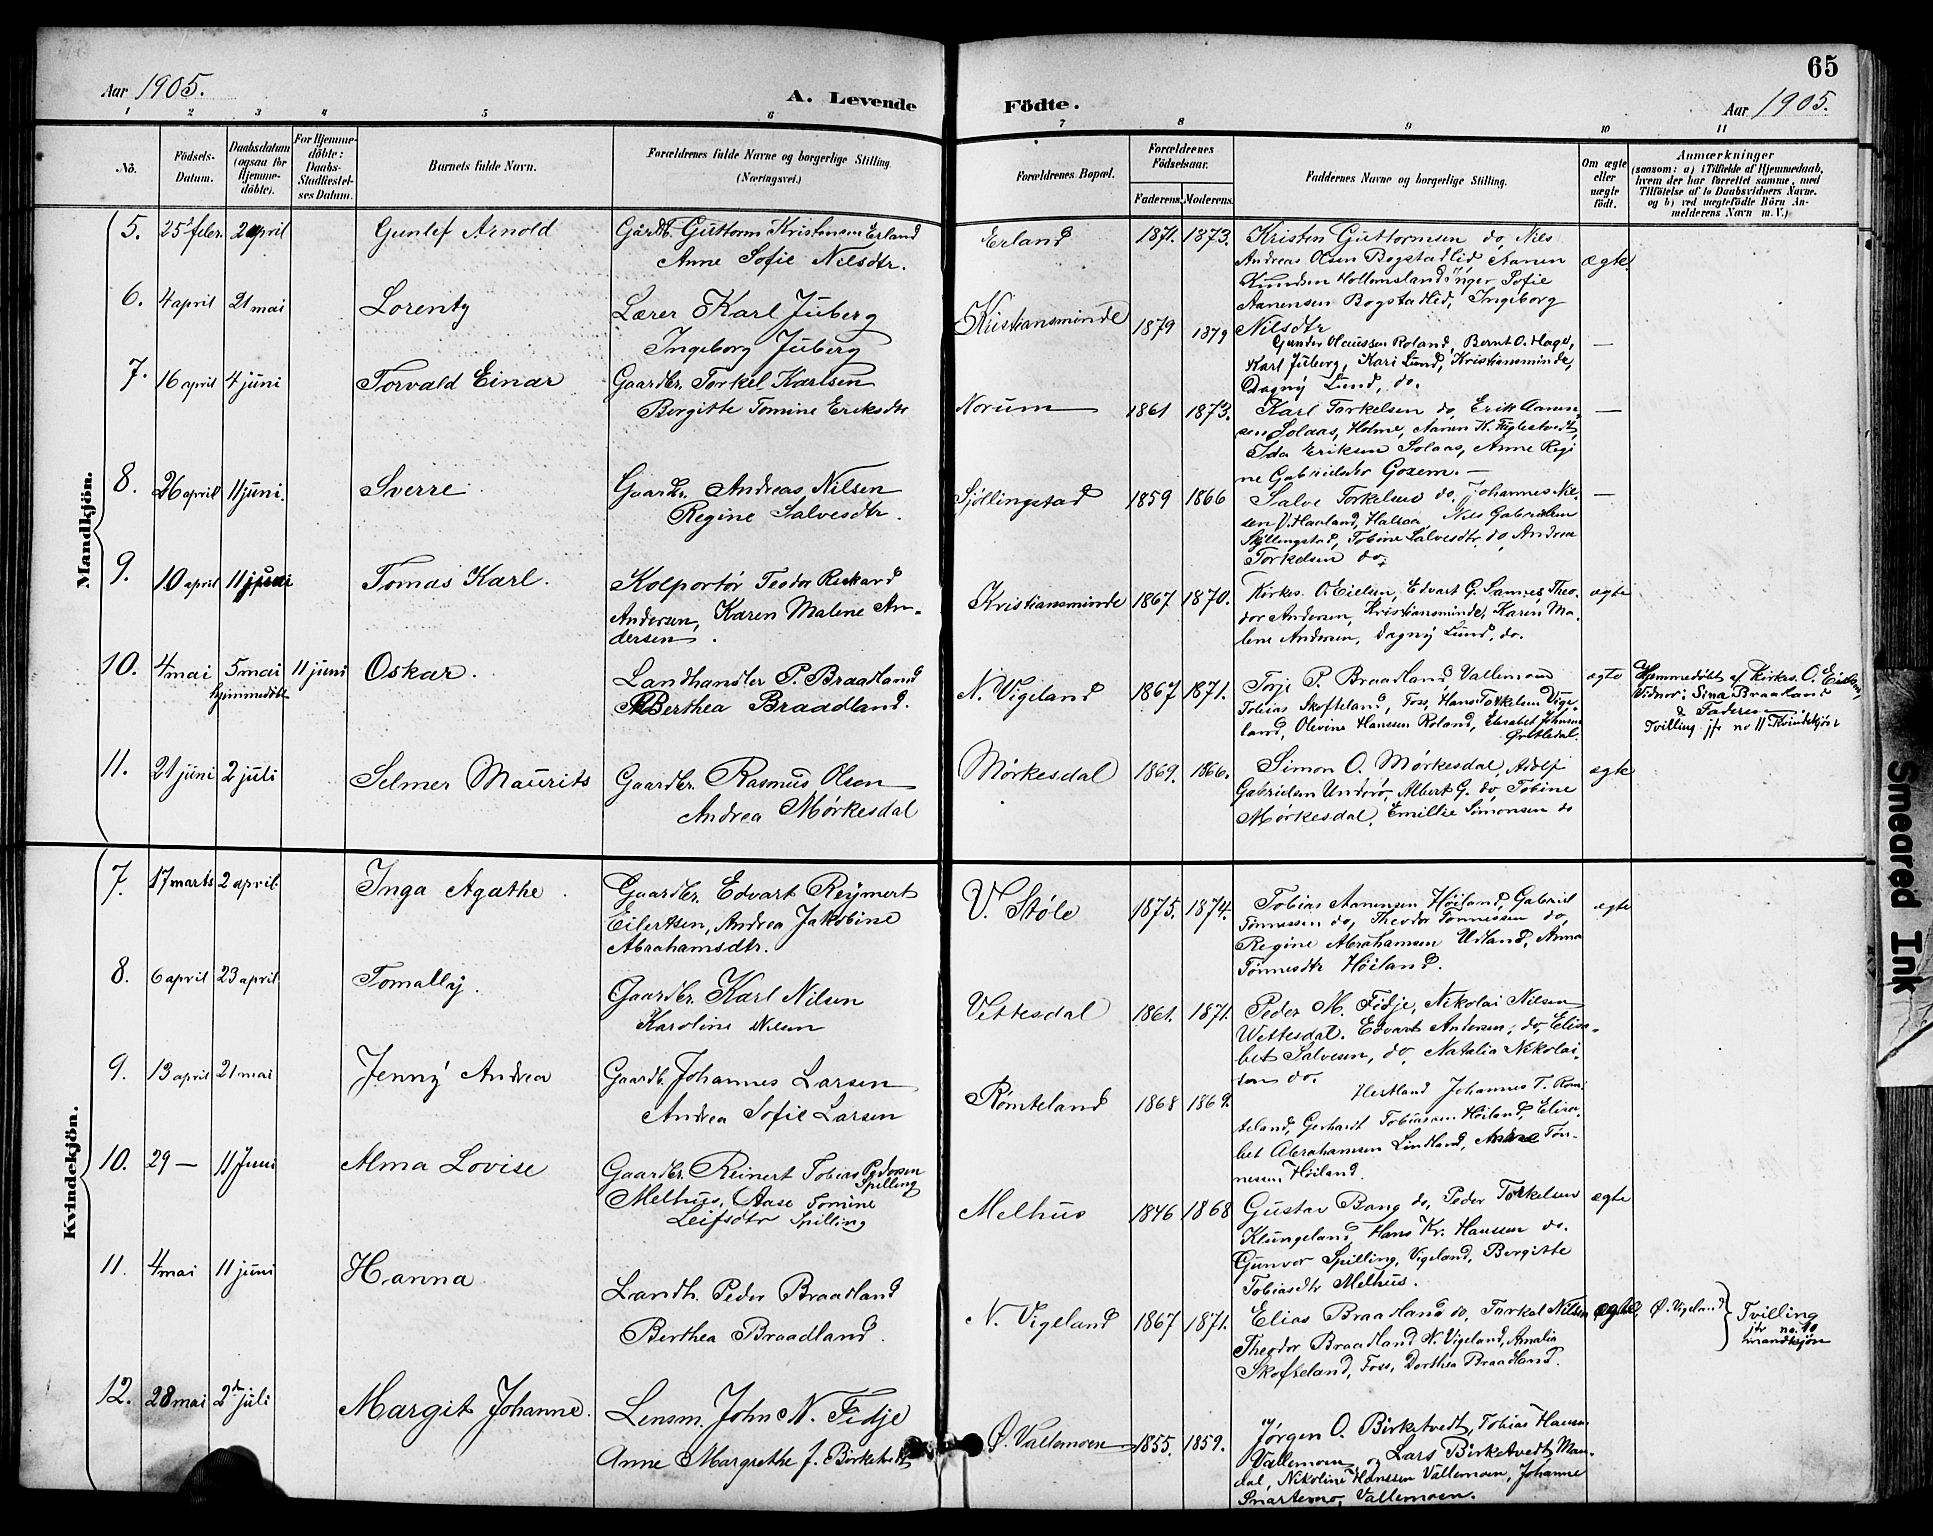 65
Aar 1905.
A. Levende Födte.
Aar 1905.
1 2 3 4 5 6 7 8 9 10 11
No.
Födsels-Datum.
Daabsdatum (ogsaa for Hjemmedöbte).
For Hjemmedöbte: Daabs-Stadfæstelses Datum.
Barnets fulde Navn.
Forældrenes fulde Navne og borgerlige Stilling. (Næringsvei.)
Forældrenes Bopæl.
Forældrenes Födselsaar.
Faderens. Moderens.
Faddernes Navne og borgerlige Stilling.
Om ægte eller uægte födt.
Anmærkninger
(saasom: a) i Tilfælde af Hjemmedaab, hvem der har forrettet samme, med Tilföielse af to Daabsvidners Navne. og b) ved uægtefödte Börn Anmelderens Navn m. V.)
Mandkjön.
5. 25 febr. 2 april Gunlef Arnold
Gårdb. Guttorm Kristensen Erland
Anne Sofie Nilsdtr.
Erland 1871. 1873.
Kristen Guttormsen do, Nils
Andreas Olsen Bogstadlid, Aanen
Hollumsland Inger Sofie
Aanensen Bogstadlid, Ingeborg
Nilsdtr
ægte
6. 4 april 21 mai Lorenty
Lærer Karl Juberg
Ingeborg Juberg
Kristiansminde 1879 1879
Gunder Olaussen Roland, Bernt O. Hage,
Karl Juberg, Kari Lund, Kristiansminde,
Dagny Lund, do.
—
7. 16 april 4 juni Torvald Einar
Gaardbr. Torkel Karlsen
Bergitte Tomine Eriksdtr
Norum 1861 1873.
Karl Torkelsen do, Erik Aanen-
sen Solaas, Holme, Aanen K. Fuglestvedt,
Ida Eriksen Solaas, Anne Regi
ne Gabrielsdtr Gosem. —
—
8. 26 april 11 juni. Sverre
Gaardbr. Andreas Nilsen
Regine Salvesdtr.
Sjöllingstad 1859 1866
Salve Torkelsen do, Johannes Nil-
sen V. Haaland, Halsaa, Nils Gabrielsen
Skjllingstad, Tobine Salvesdtr. do, Andrea
Torkelsen do,
—
9. 10 april 11 juni Tomas Karl.
Kolportör Teodor Rickard
Andersen, Karen Malene An-
dersen.
Kristiansminde 1867 1870.
Kirkes. O. Eielsen, Edvart G. Sannes, Theo-
dor Andersen, Kristiansminde, Karen Ma-
lene Andersen, Dagny Lund, do.
ægte
10. 4 mai 5 mai hjemmedöbt 11 juni Oskar.
Landhandler P. Braadland
Berthea Braadland.
N. Vigeland 1867 1871.
Terje P. Braadland Vallemoen
Tobias Skofteland, Foss, Hans Torkelsen Vige-
land, Olevine Hanssen Roland, Elisabet Johnsen
Övstedal.
ægte
Hjemmedöbt af Kirkes. O. Eielsen,
Vidner: Sina Braadland
& Faderen
Tvilling jfr no 11 Kvindekjön
11. 21 juni 2 juli Selmer Maurits
Gaardbr. Rasmus Olsen
Andrea Mørkesdal
Mørkesdal 1869. 1866.
Simon O. Mørkesdal, Adolf
Gabrielsen Underö, Albert G. do, Tobine
Mørkesdal, Emillie Simonsen do
ægte
Kvindekjön.
7. 17 marts 2 april. Inga Agathe.
Gaardbr. Edvart Reymert
Eilertsen, Andrea Jakobine
Abrahamsdtr.
V. Støle 1875. 1874.
Tobias Aanensen Höiland, Gabriel
Tönnessen do, Theodor Tönnessen do,
Regine Abrahamsen Udland, Anna
Tönnesdtr Höiland.
ægte
8. 6 april 23 april Tomally.
Gaardbr. Karl Nilsen
Karoline Nilsen
Vettesdal 1861. 1871.
Peder M. Fidje, Nikolai Nilsen
Wettesdal. Edvart Andersen, do, Elisa-
bet Salvesen, do, Natalia Nikolai-
sen do.
9. 13 april 21 mai Jenny Andrea
Gaardb. Johannes Larsen
Andrea Sofie Larsen
Römteland 1868 1869.
Hestland Johannes T. Rom-
teland, Gerhardt Tobiassen Höiland, Elisa-
bet Abrahamsen Lindland, Andrea Tön-
nessen, Höiland.
10. 29 — 11 Juni Alma Lovise
Gaardbr. Reinert Tobias Pedersen Spilling
Melhus, Aase Tomine
Leifsdtr Spilling
Melhus 1846 1868
Gustav Bang do, Peder Torkelsen
Klungeland, Hans Kr. Hansen do.
Gunvor Spilling, Vigeland, Bergitte
Tobiasdtr Melhus.
ægte
11. 4 mai 11 juni Hanna
Landh. Peder Braadland
Berthea Braadland.
N. Vigeland 1867 1871.
Elias Braadland do, Torkel Nilsen
Ø. Vigeland
Theodor Braadland N. Vigeland, Amalia
Skofteland, Foss, Dorthea Braadland.
ægte
Tvilling
jfr no. 10
mandkjön
12. 28 mai 2 juli Margit Johanne.
Lensm. John N. Fidje
Anne Margrethe J. Birketvedt
Ø. Vallemoen 1855. 1859.
Jörgen O. Birketvedt, Tobias Hansen
Vallemoen og Lars Birketvedt, Man-
dal, Nikoline Hanssen Vallemoen, Johanne
Snartemo, Vallemoen.
Smeared Ink